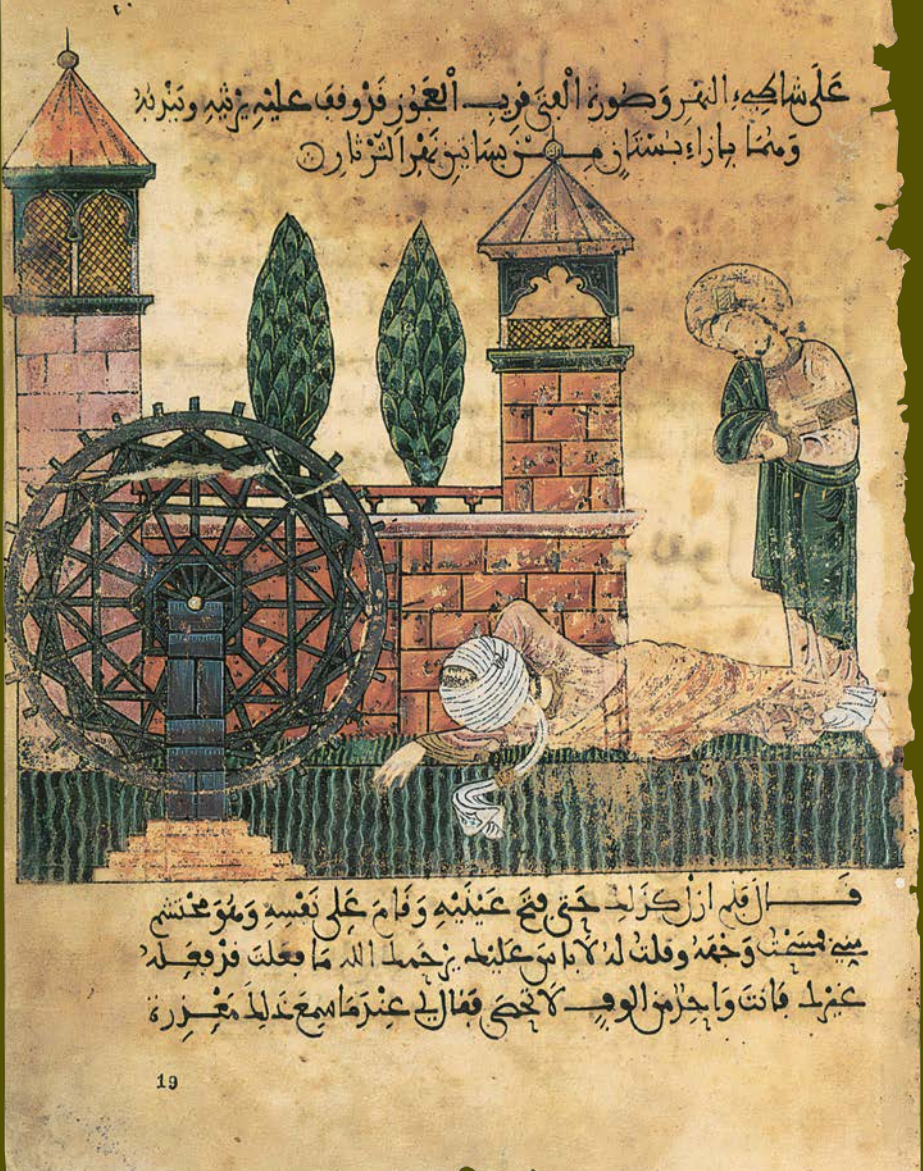 عَلَى شاطىءِ النهر وَصُورة الْفتى قريب الْعَجُوز قَدْ وقف عليْهِ يرْثيه ويَنْدبهُ
وَهمَا بازاءِ بسْتَانٍ مِن بساتين نَهْر الثّرْثار
قَال فلم ازلْ كذلك حَتى فتحَ عَيْنَيْهِ وَقامَ عَلى نَفْسِهِ وَهُوَ محْتشم
مِني فمسَحْت وَجْهَهُ وقلت لهُ لا باسَ عَليْك يرْحمك الله مَا فعلت قدْ فعَلهُ
غيْرك فانتَ وَاحِدٌ من الوفٍ لا تحْصَى فقال لي عِنْدَمَا سمِعَ ذَلِكَ مَعْذِرة
19